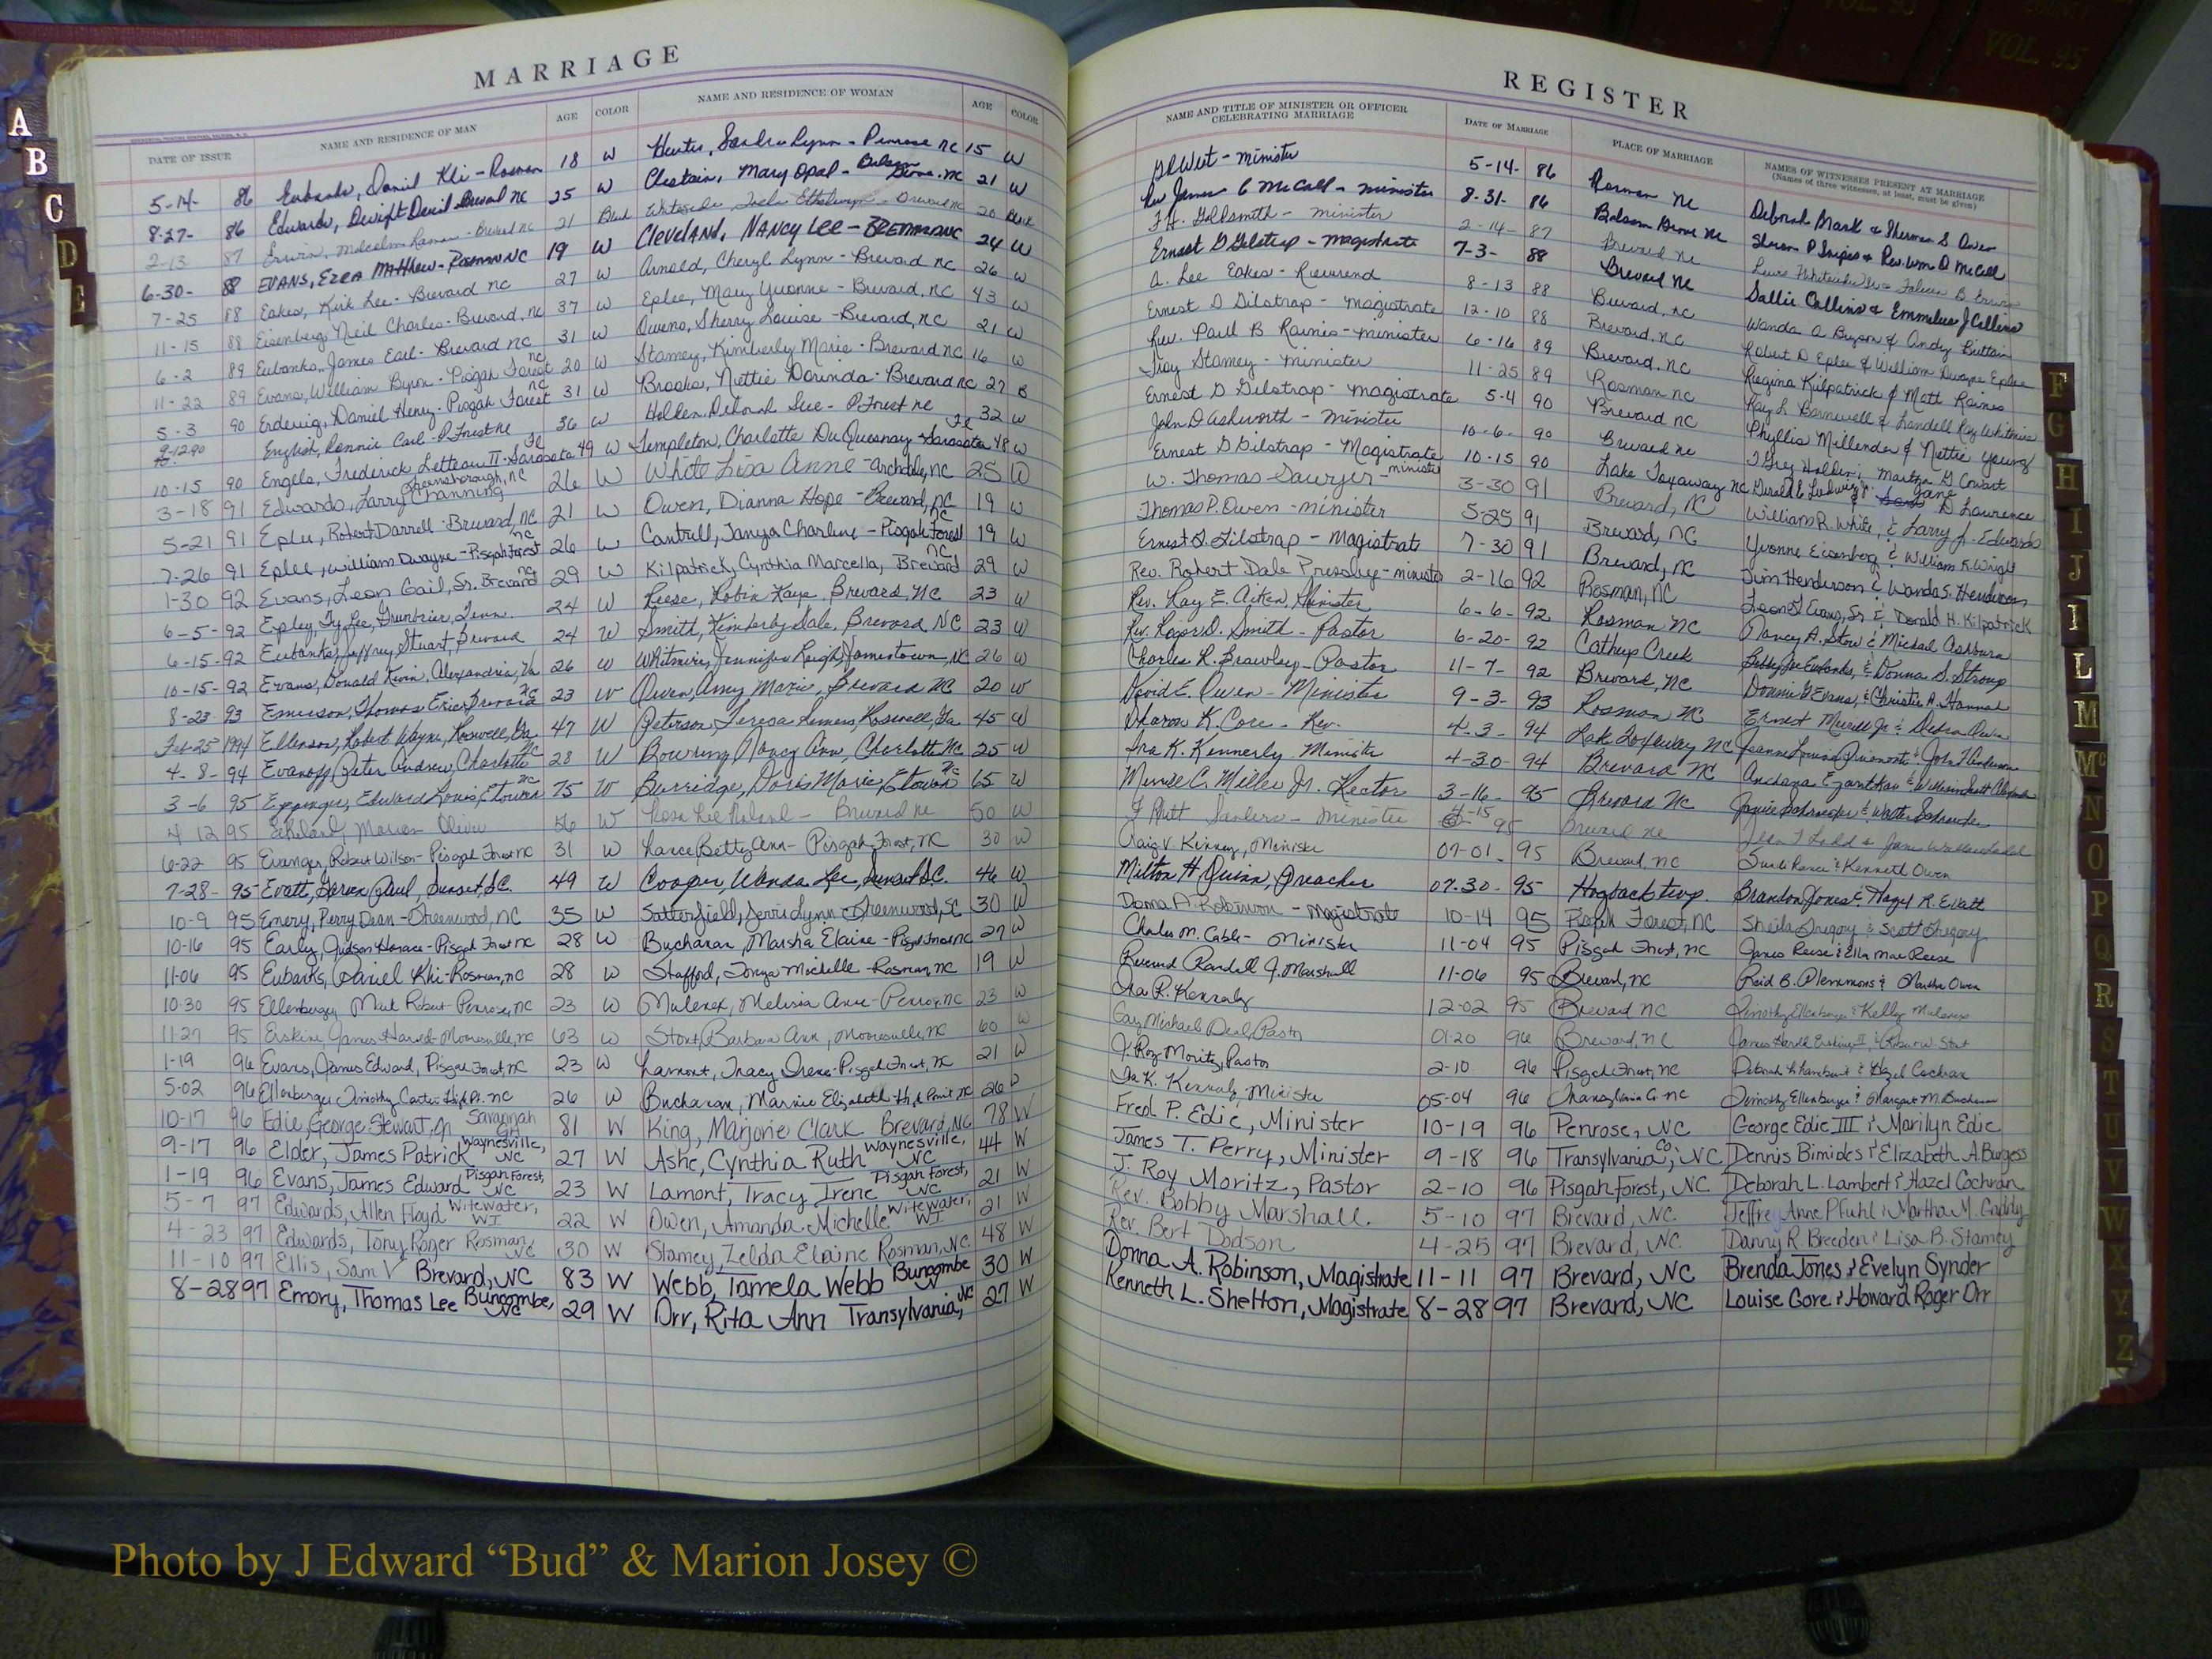 MARRIAGE
DATE OF ISSUE NAME AND RESIDENCE OF MAN AGE COLOR NAME AND RESIDENCE OF WOMAN AGE COLOR
5-14- 86 Eubanks, Daniel Kli - Rosman 18 W Sandra Lynn - Penrose NC 15 W
8-27- 86 Edwards, Dwight David - Brevard NC 25 W Chastain, Mary Opal - Balsam Grove, NC 21 W
2-13 87 Erwin, Malcolm - Brevard NC 21 Blk Whiteside, - Brevard NC 20 Black
6-30- 88 EVANS, EZRA MATTHEW - Rosman NC 19 W CLEVELAND, NANCY LEE - NC 24 W
7-25 88 Eakes, Kirk Lee - Brevard NC 27 W Arnold, Cheryl Lynn - Brevard NC 26 W
11-15 88 Eisenberg, Neil Charles - Brevard, NC 37 W Eplee, Mary Yvonne - Brevard, NC 43 W
6-2 89 Eubanks, James Earl - Brevard NC 31 W Owens, Sherry Louise - Brevard, NC 21 W
11-22 89 Evans, William Byron - Pisgah Forest NC 20 W Stamey, Kimberly Marie - Brevard NC 16 W
5-3 90 Erdewig, Daniel Henry - Pisgah Forest NC 31 W Brooks, Nettie Dorinda - Brevard NC 27 B
9-12-90 English, Ronnie Carl - P. Forest NC 36 W Holden, Deborah Sue - P. Forest NC 32 W
10-15 90 Engels, Frederick Letteau II - Sarasota Fl 49 W Templeton, Charlotte DuQuesnay - Sarasota Fl 48 W
3-18 91 Edwards, Larry Channing Greensborough, NC 26 W White Lisa Anne - Archdale, NC 25 W
5-21 91 Eplee, Robert Darrell - Brevard, NC 21 W Owen, Dianna Hope - Brevard, NC 19 W
7-26 91 Eplee, William Dwayne - Pisgah Forest NC 26 W Cantrell, Tanya Charlene - Pisgah Forest NC 19 W
1-30 92 Evans, Leon Gail, Sr. Brevard NC 29 W Kilpatrick, Cynthia Marcella, Brevard NC 29 W
6-5-92 Epley, Ty Lee, Tenn. 24 W Reese, Robin Kaye, Brevard, NC 23 W
6-15-92 Eubanks, Jeffrey Stuart, Brevard 24 W Smith, Kimberly Dale, Brevard NC 23 W
10-15-92 Evans, Donald Kevin, Alexandria, Va 26 W Whitmire, Jennifer Leigh, Jamestown, NC 26 W
8-23 93 Emerson, Thomas Eric, Brevard NC 23 W Owen, Amy Marie, Brevard NC 20 W
Feb-25 1994 Ellenson, Robert Wayne, Roswell, Ga 47 W Peterson, Teresa Roswell, Ga 45 W
4-8-94 Evanoff, Peter Andrew, Charlotte NC 28 W Bowring, Nancy Ann, Charlotte NC 25 W
3-6 95 Eppinger, Edward Louis, Etowah NC 75 W Burridge, Doris Marie, Etowah NC 65 W
4 12 95 Marion Oliver 56 W - Brevard NC 50 W
6-22 95 Robert Wilson - Pisgah Forest NC 31 W Lance Betty Ann - Pisgah Forest, NC 30 W
7-28- 95 Evatt, Paul, Sunset, SC. 49 W Cooper, Wanda Lee, Sunset SC. 46 W
10-9 95 Emery, Perry Dean - Greenwood, NC 35 W Satterfield, Lynn - Greenwood, SC 30 W
10-16 95 Early, Judson Horace - Pisgah Forest NC 28 W Buchanan, Marsha Elaine - Pisgah Forest NC 27 W
11-06 95 Eubanks, Daniel Kli - Rosman, NC 28 W Stafford, Tonya Michelle - Rosman, NC 19 W
10-30 95 Ellenberger, Mark Robert - Penrose, NC 23 W Mulenex, Melissa Anne - Penrose, NC 23 W
11-27 95 Erskine, James Harold - Mooresville, NC 63 W Stout, Barbara Ann, Mooresville, NC 60 W
1-19 96 Evans, James Edward, Pisgah Forest, NC 23 W Lamont, Tracy Irene - Pisgah Forest, NC 21 W
5-02 96 Ellenberger Timothy Carter High Pt. NC 26 W Buchanan, Marnie Elizabeth High Point NC 26 W
10-17 96 Edie, George Stewart, Jr Savannah GA 81 W King, Marjorie Clark Brevard, NC 78 W
9-17 96 Elder, James Patrick Waynesville, NC 27 W Ashe, Cynthia Ruth Waynesville, NC 44 W
1-19 96 Evans, James Edward Pisgah Forest, NC 23 W Lamont, Tracy Irene Pisgah Forest, NC 21 W
5-7 97 Edwards, Allen Floyd Witewater, WI 22 W Owen, Amanda Michelle Witewater, WI 21 W
4-23 97 Edwards, Tony Roger Rosman, NC 30 W Stamey, Zelda Elaine Rosman, NC 48 W
11-10 97 Ellis, Sam V Brevard, NC 83 W Webb, Tamela Webb Buncombe NC 30 W
8-28 97 Emory, Thomas Lee Buncombe, NC 29 W Orr, Rita Ann Transylvania, NC 27 W
REGISTER
NAME AND TITLE OF MINISTER OR OFFICER CELEBRATING MARRIAGE DATE OF MARRIAGE PLACE OF MARRIAGE NAMES OF WITNESSES PRESENT AT MARRIAGE
(Names of three witnesses, at least, must be given)
West - Minister 5-14- 86 Rosman NC Deborah Mark & Sherman S. Owen
Rev James C McCall - minister 8-31- 86 Balsam Grove NC Sharon P Snipes & Rev. Wm D McCall
F.H. Goldsmith - minister 2-14- 87 Brevard NC
Ernest D Gilstrap - magistrate 7-3- 88 Brevard NC Sallie Collins & Emmaleus J Collins
A. Lee Eakes - Reverend 8-13 88 Brevard, NC Wanda A Bryson & Andy Brittain
Ernest D Gilstrap - Magistrate 12-10 88 Brevard, NC Robert D Eplee & William Dwayne Eplee
Rev. Paul B Raines - minister 6-16 89 Brevard, NC Regina Kilpatrick & Matt Raines
Troy Stamey - minister 11-25 89 Rosman NC Kay L. Barnwell & Randall Ray Whitmire
Ernest D Gilstrap - magistrate 5-4 90 Brevard NC Phyllis Millender & Nettie Young
John D Ashworth - minister 10-6- 90 Brevard NC Holden; Martha G Cowart
Ernest D Gilstrap - Magistrate 10-15 90 Lake Toxaway NC Gerald C Ludwig Jr. & Jane D Laurence
W. Thomas Sawyer - minister 3-30 91 Brevard, NC William R. White, & Larry J. Edwards
Thomas P. Owen - minister 5-25 91 Brevard, NC Yvonne Eisenberg & William K. Wright
Ernest D. Gilstrap - Magistrate 7-30 91 Brevard, NC Jim Henderson & Wanda S. Henderson
Rev. Robert Dale Pressley - minister 2-16 92 Rosman, NC Leon G Evans, Sr & Donald H. Kilpatrick
Rev. Ray E. Aiken, Minister 6-6-92 Rosman NC Nancy A. Stow & Michael Ashburn
Rev. Roger D. Smith - Pastor 6-20-92 Cathey Creek Bobby Joe Eubanks, & Donna S. Stroup
Charles R. Brawley - Pastor 11-7-92 Brevard, NC Donnie G Evans, & Christie A. Hannah
David E. Owen - Minister 9-3-93 Rosman NC Ernest Merrill Jr & Debra Owen
Sharon K. Core - Rev. 4-3-94 Lake Toxaway NC Jeanne Louise & John
Ira K. Kennerly Minister 4-30-94 Brevard NC
Merrill C. Miller Jr. Rector 3-16-95 Brevard NC Schroeder & Walter Schroeder
Sanders - Minister 4-15 95 Brevard NC
Craig V. Kinney, Minister 07-01-95 Brevard, NC & Kenneth Owen
Milton H. Quinn, Preacher 07-30-95 Hogback twp. Brandon Jones & Hazel R. Evatt
Donna A. Robinson - Magistrate 10-14 95 Pisgah Forest, NC Sheila Gregory & Scott Gregory
Charles M. Cable - Minister 11-04 95 Pisgah Forest, NC James Reese & Ella Mae Reese
Reverend Randall J. Marshall 11-06 95 Brevard, NC Reid B. Clemmons & Martha Owen
Ira R. Kennerly 12-02 95 Brevard NC Timothy Ellenberger & Kelly Mulenex
Gary Michael Deal, Pastor 01-20 96 Brevard, NC James Harold Erskine, II, & Robert W. Stout
J. Roy Moritz, Pastor 2-10 96 Pisgah Forest, NC Deborah L Lambert & Hazel Cochran
Ira K. Kennerly Minister 05-04 96 Transylvania Co NC Timothy Ellenberger & Margaret M. Buchanan
Fred P. Edie, Minister 10-19 96 Penrose, NC George Edie III & Marilyn Edie
James T. Perry, Minister 9-18 96 Transylvania Co, NC Dennis Bimides & Elizabeth A. Burgess
J. Roy Moritz, Pastor 2-10 96 Pisgah Forest, NC Deborah L. Lambert & Hazel Cochran
Rev. Bobby Marshall. 5-10 97 Brevard, NC. Jeffrey Anne Pfuhl & Martha M. Gaddy
Rev. Bert Dodson 4-25 97 Brevard, NC. Danny R Breeden & Lisa B. Stamey
Donna A. Robinson, Magistrate 11-11 97 Brevard, NC Brenda Jones & Evelyn Synder
Kenneth L. Shelton, Magistrate 8-28 97 Brevard, NC Louise Gore & Howard Roger Orr
A
B
C
D
E
F
G
H
I
J
L
M
Mc
N
O
P
Q
R
S
T
U
V
W
X
Y
Z
VOL. 95
Photo by J Edward “Bud” & Marion Josey ©